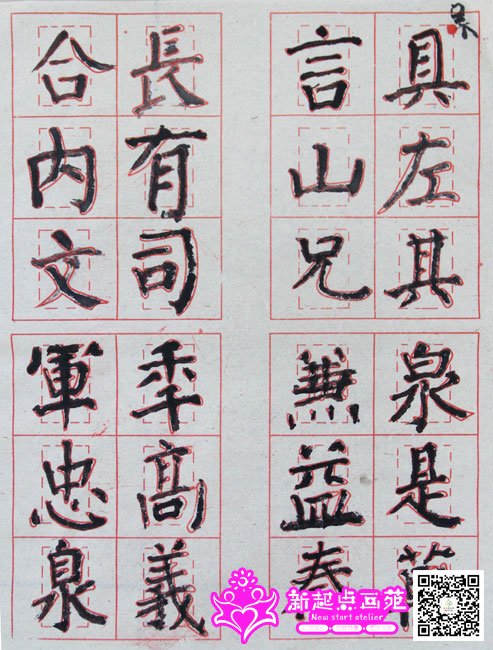 具左其
言山兄
長有司
合内文
泉是
兼益
季高義
軍忠泉
新起点画苑
New start atelier